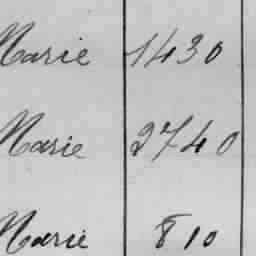 Marie 1430
Marie 2740
Marie 810